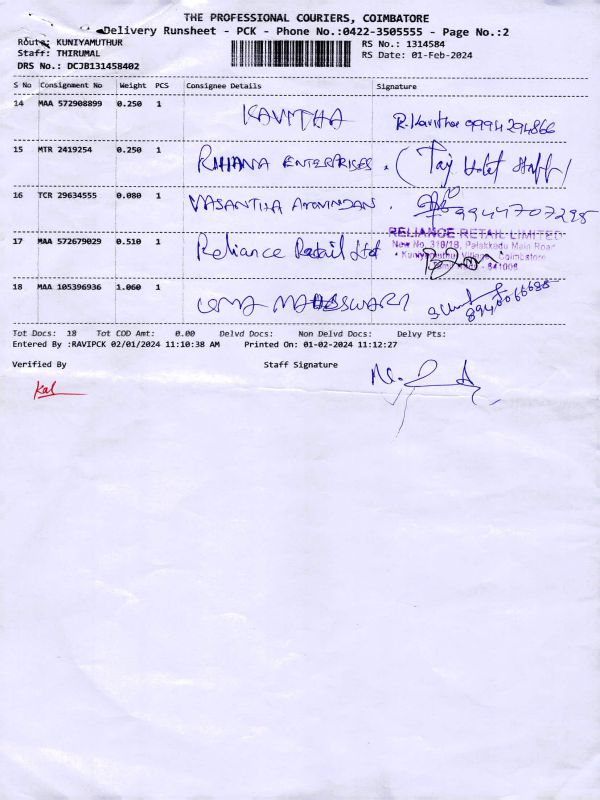 THE PROFESSIONAL COURIERS, COIMBATORE
Delivery Runsheet - PCK - Phone No.:0422-3505555 - Page No.:2
Route: KUNIYAMUTHUR
RS No.: 1314584
Staff: THIRUMAL
RS Date: 01-Feb-2024
DRS No.: DCJB131458402
S No Consignment No Weight PCS Consignee Details Signature
14 MAA 572908899 0.250 1 KAVITHA R. Kavitha 9994294866
15 MTR 2419254 0.250 1 RIHANA ENTERPRISES. (Taj Hotel Staff)
16 TCR 29634555 0.080 1 VASANTHA 9944707295
17 MAA 572679029 0.510 1 Reliance Retail Ltd
RELIANCE RETAIL LIMITED
New No. 318/1B, Palakkadu Main Road
Kuniyamuthur Village, Coimbatore
- 641008
18 MAA 105396936 1.060 1 UMA MAHESWARI
Tot Docs: 18 Tot COD Amt: 0.00 Delvd Docs: Non Delvd Docs: Delvy Pts:
Entered By :RAVIPCK 02/01/2024 11:10:38 AM Printed On: 01-02-2024 11:12:27
Verified By Staff Signature
Kal